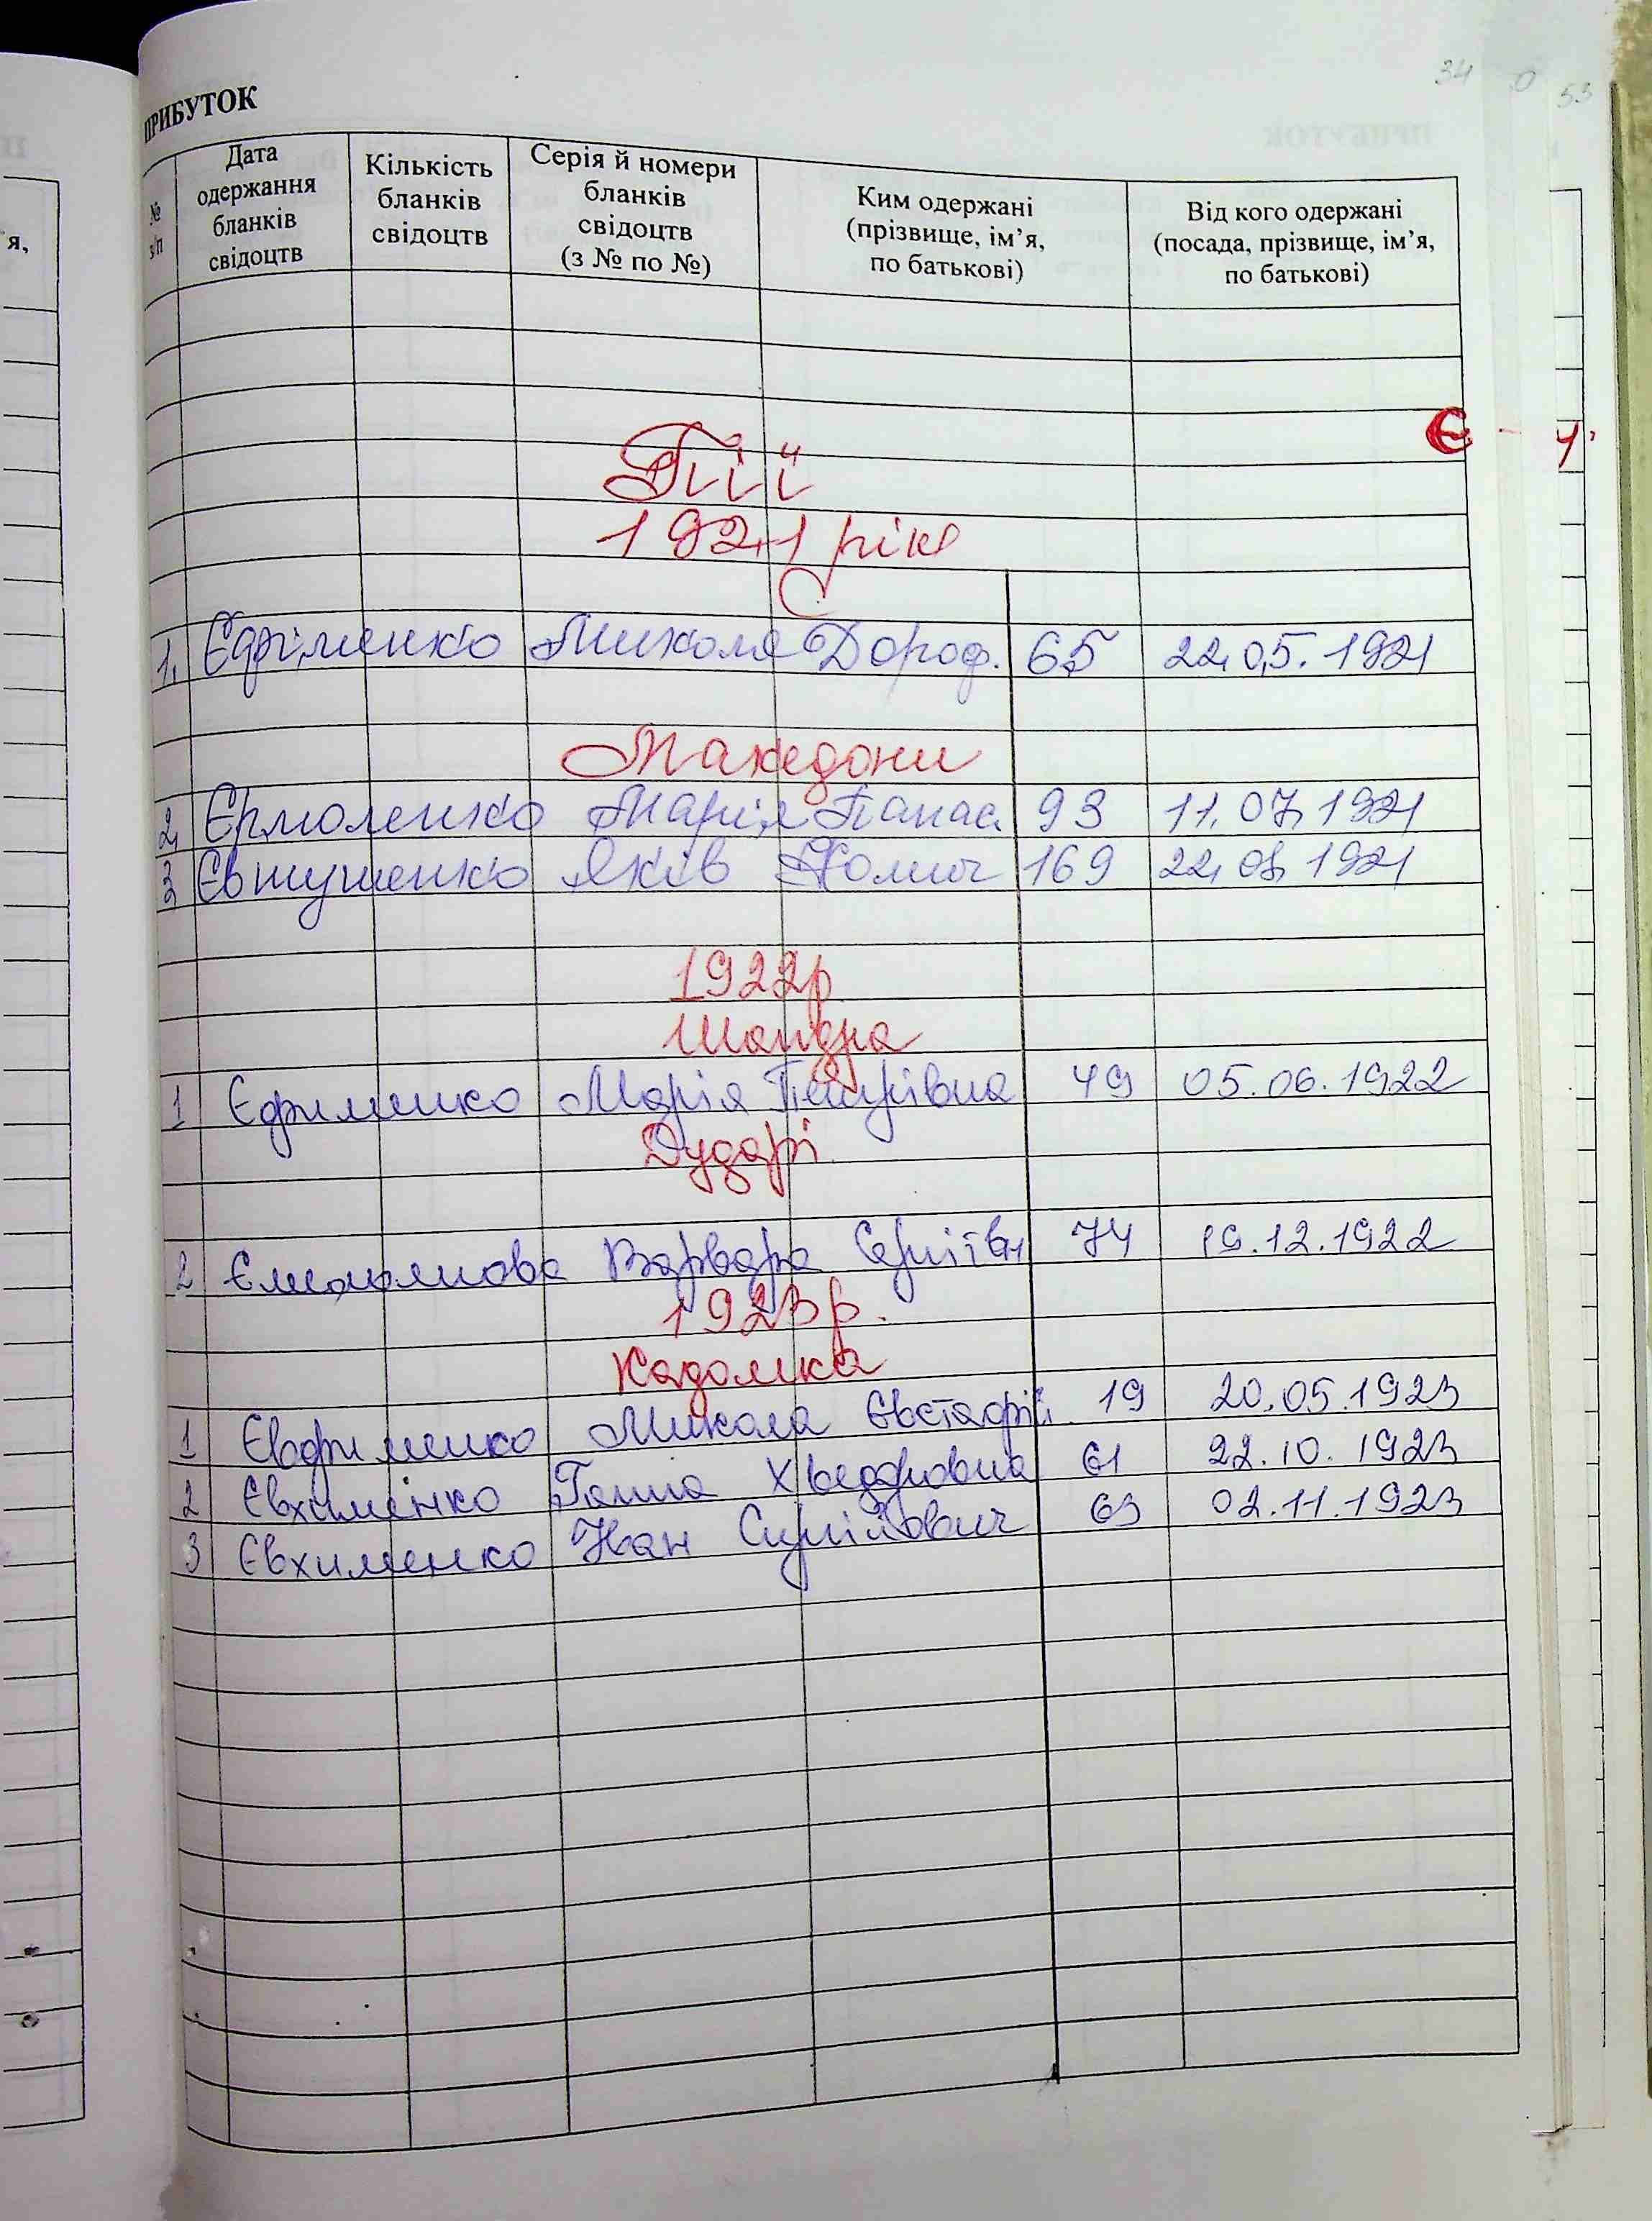 34 0 53
ПРИБУТОК
№ з/п
Дата одержання бланків свідоцтв
Кількість бланків свідоцтв
Серія й номери бланків свідоцтв (з № по №)
Ким одержані (прізвище, ім’я, по батькові)
Від кого одержані (посада, прізвище, ім’я, по батькові)
я,
Є
Пії
1921 рік
1. Єфіменко Микола Дороф. 65 22.05.1921
Македони
2 Єрмоленко Марія Панас. 93 11.07.1921
3 Євтушенко Яків Хомич 169 22.08.1921
1922р
Шандра
1 Єфименко Марія Петрівна 49 05.06.1922
Дударі
2 Варвара Сергіївн 74 19.12.1922
1923р.
Кадомка
1 Євфименко Микола Євстафій 19 20.05.1923
2 Євхименко Ганна Хведоровна 61 22.10.1923
3 Євхименко Іван Сергійович 63 02.11.1923